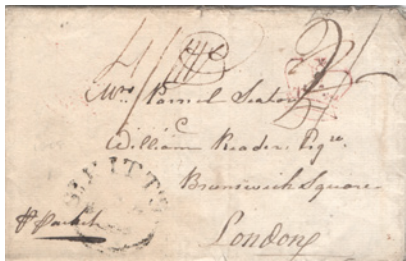 Mrs. Parnel Seaton
C
William Reader Esqre.
Brunswick Square
London
ST KITTS
P Packet